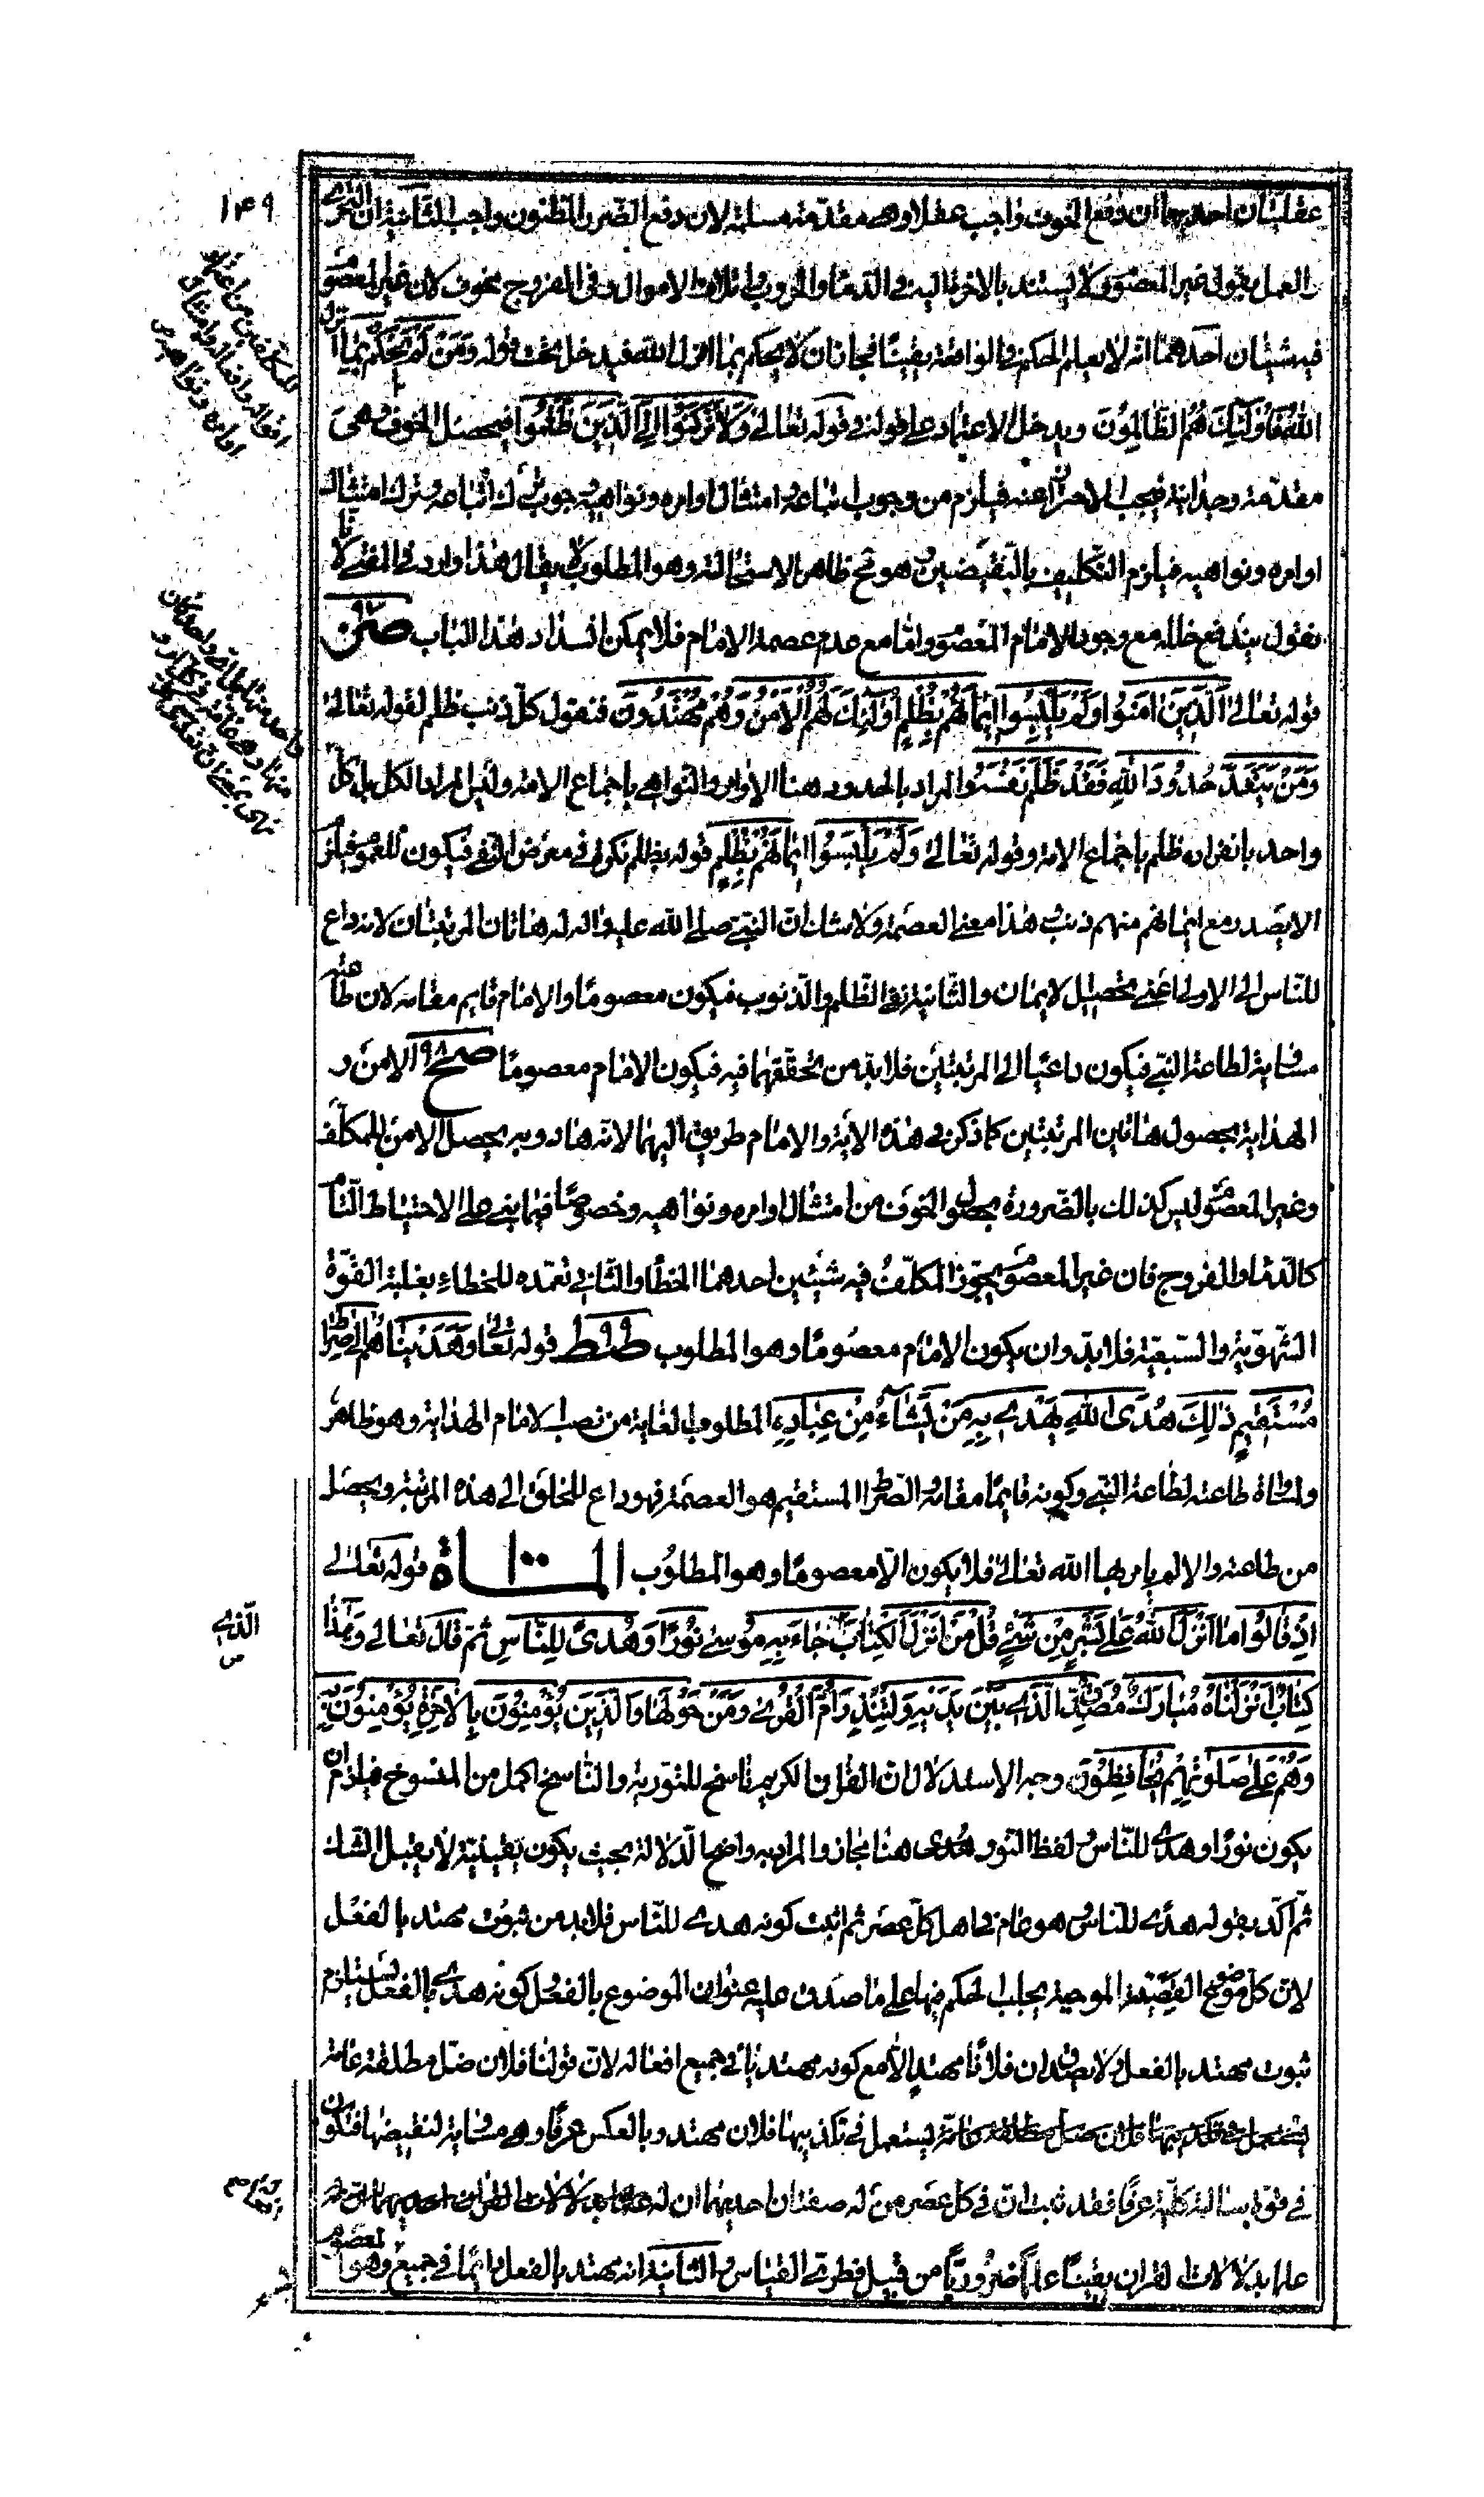 ١٤٩
عقليتان احديهما ان دفع الخوف واجب عقلا وهي مقدمة مسلمة لان دفع الضرر المظنون واجب الثانية ان
والعمل بقول غير المعصوم لا يستند بالاخرة اليه في الدماء والحروب واتلاف الاموال وفي الفروج مخوف لان غير المعصوم
فيه شيئان احدهما انه لا يعلم الحكم في الواقعة يقينًا فجاز ان لا يحكم بما انزل الله فيدخل تحت قوله وَمَنْ لَمْ يَحْكُمْ بِمَا اَنْزَلَ
اللهُ فَاُولٰئِكَ هُمُ الظَّالِمُونَ ويدخل الاعتماد على قوله في قوله تعالى وَلَا تَرْكَنُوا اِلَى الَّذِينَ ظَلَمُوا فيحصل الخوف وهي
مقدمة وجدانية فيجب الاحتراز عنه فيلزم من وجوب اتباعه وامتثال اوامره ونواهيه وجوب ترك اتباعه وترك امتثال
اوامره ونواهيه فيلزم التكليف بالنقيضين وهو مح ظاهر الاستحالة وهو المطلوب لا يقال هذا وارد في المفتى لانا
نقول يندفع خلله مع وجود الامام المعصوم وامّا مع عدم عصمة الامام فلا يمكن انسداد هذا الباب صز ٩٧
قوله تعالى اَلَّذِينَ اٰمَنُوا وَلَمْ يَلْبِسُوا اِيمَانَهُمْ بِظُلْمٍ اُولٰئِكَ لَهُمُ الْاَمْنُ وَهُمْ مُهْتَدُونَ فنقول كل ذنب ظلم لقوله تعالى
وَمَنْ يَتَعَدَّ حُدُودَ اللهِ فَقَدْ ظَلَمَ نَفْسَهُ والمراد بالحدود هنا الاوامر والنواهي باجماع الامة وليس المراد الكل بل كل
واحد بانفراده ظلم باجماع الامة وقوله تعالى وَلَمْ يَلْبِسُوا اِيمَانَهُمْ بِظُلْمٍ قوله بظلم نكرة في معرض النفي فيكون للعموم فيلزم
الا يصدر مع ايمانهم منهم ذنب وهذا معنى العصمة ولا شك ان النبي صلى الله عليه واله له هاتان المرتبتان لانه داع
للناس الى الاولى اعني تحصيل الايمان والثانية نفي الظلم والذنوب فيكون معصومًا والامام قايم مقامه لان طاعته
مساوية لطاعة النبي فيكون داعيًا الى المرتبتين فلا بد من تحققهما فيه فيكون الامام معصومًا صح ٩٨ الامن و
الهداية بحصول هاتين المرتبتين كما ذكر في هذه الاية والامام طريق اليهما لانه هاد وبه يحصل الامن للمكلف
وغير المعصوم ليس كذلك بالضرورة لحصول الخوف من امتثال اوامره ونواهيه وخصوصًا فيما بني على الاحتياط التام
كالدماء والفروج فان غير المعصوم يجوز المكلف فيه شيئين احدهما الخطأ والثاني تعمده للخطاء بغلبة القوة
الشهوية والسبعية فلا بد وان يكون الامام معصومًا وهو المطلوب صط ٩٩ قوله تعالى وَهَدَيْنَاهُمْ اِلَى صِرَاطٍ
مُسْتَقِيمٍ ذٰلِكَ هُدَى اللهِ يَهْدِي بِهِ مَنْ يَشَاءُ مِنْ عِبَادِهِ المطلوب الغاية من نصب الامام الهداية وهو ظاهر
ولمساواة طاعته لطاعة النبي وكونه قايمًا مقامه والصراط المستقيم هو العصمة فهو داع للخلق الى هذه المرتبة ويحصل
من طاعته والا لم يامر بها الله تعالى فلا يكون الا معصومًا وهو المطلوب المائة ١٠٠ قوله تعالى
اِذْ قَالُوا مَا اَنْزَلَ اللهُ عَلَى بَشَرٍ مِنْ شَيْءٍ قُلْ مَنْ اَنْزَلَ الْكِتَابَ جَاءَ بِهِ مُوسَى نُورًا وَهُدًى لِلنَّاسِ ثم قال تعالى وَهٰذَا
كِتَابٌ اَنْزَلْنَاهُ مُبَارَكٌ مُصَدِّقُ الَّذِي بَيْنَ يَدَيْهِ وَلِتُنْذِرَ اُمَّ الْقُرَى وَمَنْ حَوْلَهَا وَالَّذِينَ يُؤْمِنُونَ بِالْاٰخِرَةِ يُؤْمِنُونَ بِهِ
وَهُمْ عَلَى صَلَوتِهِمْ يُحَافِظُونَ وجه الاستدلال ان القران الكريم ناسخ للتورية والناسخ اكمل من المنسوخ فيلزم ان
يكون نورًا وهدى للناس ولفظ النور وهدى هنا مجاز والمراد به واضح الدلالة بحيث يكون يقينية لا يقبل الشك
ثم اكد بقوله هدى للناس وهو عام في اهل كل عصر ثم اثبت كونه هدى للناس فلا بد من ثبوت مهتد بالفعل
لان كل موضوع القضية الموجبة يجلب الحكم فيها على ما صدق عليه عنوان الموضوع بالفعل وكونه هدى بالفعل يستلزم
ثبوت مهتد بالفعل ولا يصدق ان فلانًا مهتد الا مع كونه مهتديا في جميع افعاله لان قولنا فلان ضل مطلقة عامة
يستعمل في تكذيبها فلان مهتد وبالعكس عرفًا وهي مساوية لنقيضها فتكون
في قوة سالبة كلية عرفًا فقد ثبت ان في كل عصر من له صفتان احديهما ان له
علما بدلالات القران يقينًا علمًا ضروريًا من قبيل فطري القياس والثانية انه مهتد بالفعل دايمًا في جميع وهو المعصوم
الذي
ص